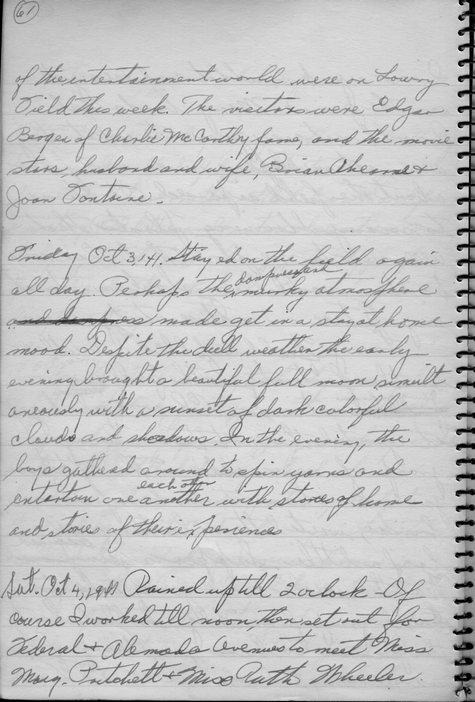 61
of the entertainment world were on Lowry
Field this week. The visitors were Edgar
Bergen of Charlie McCarthy fame, and the movie
stars, husband and wife, Brian Aherne &
Joan Fontaine.
Friday Oct 3, 41. Stayed on the field again
all day. Perhaps the dampness and murky atmosphere
made get in a stay at home
mood. Despite the dull weather the early
evening brought a beautiful full moon simult
aneously with a sunset of dark colorful
clouds and shadows. In the evening, the
boys gathead around to spin yarns and
each other
entertain one another with stories of home
and stories of their experiences
Sat. Oct 4, 1941 Rained up till 2 oclock - Of
course I worked till noon, then set out for
Federal & Alameda Avenues to meet Miss
Marg. Pritchett & Miss Ruth Wheeler.